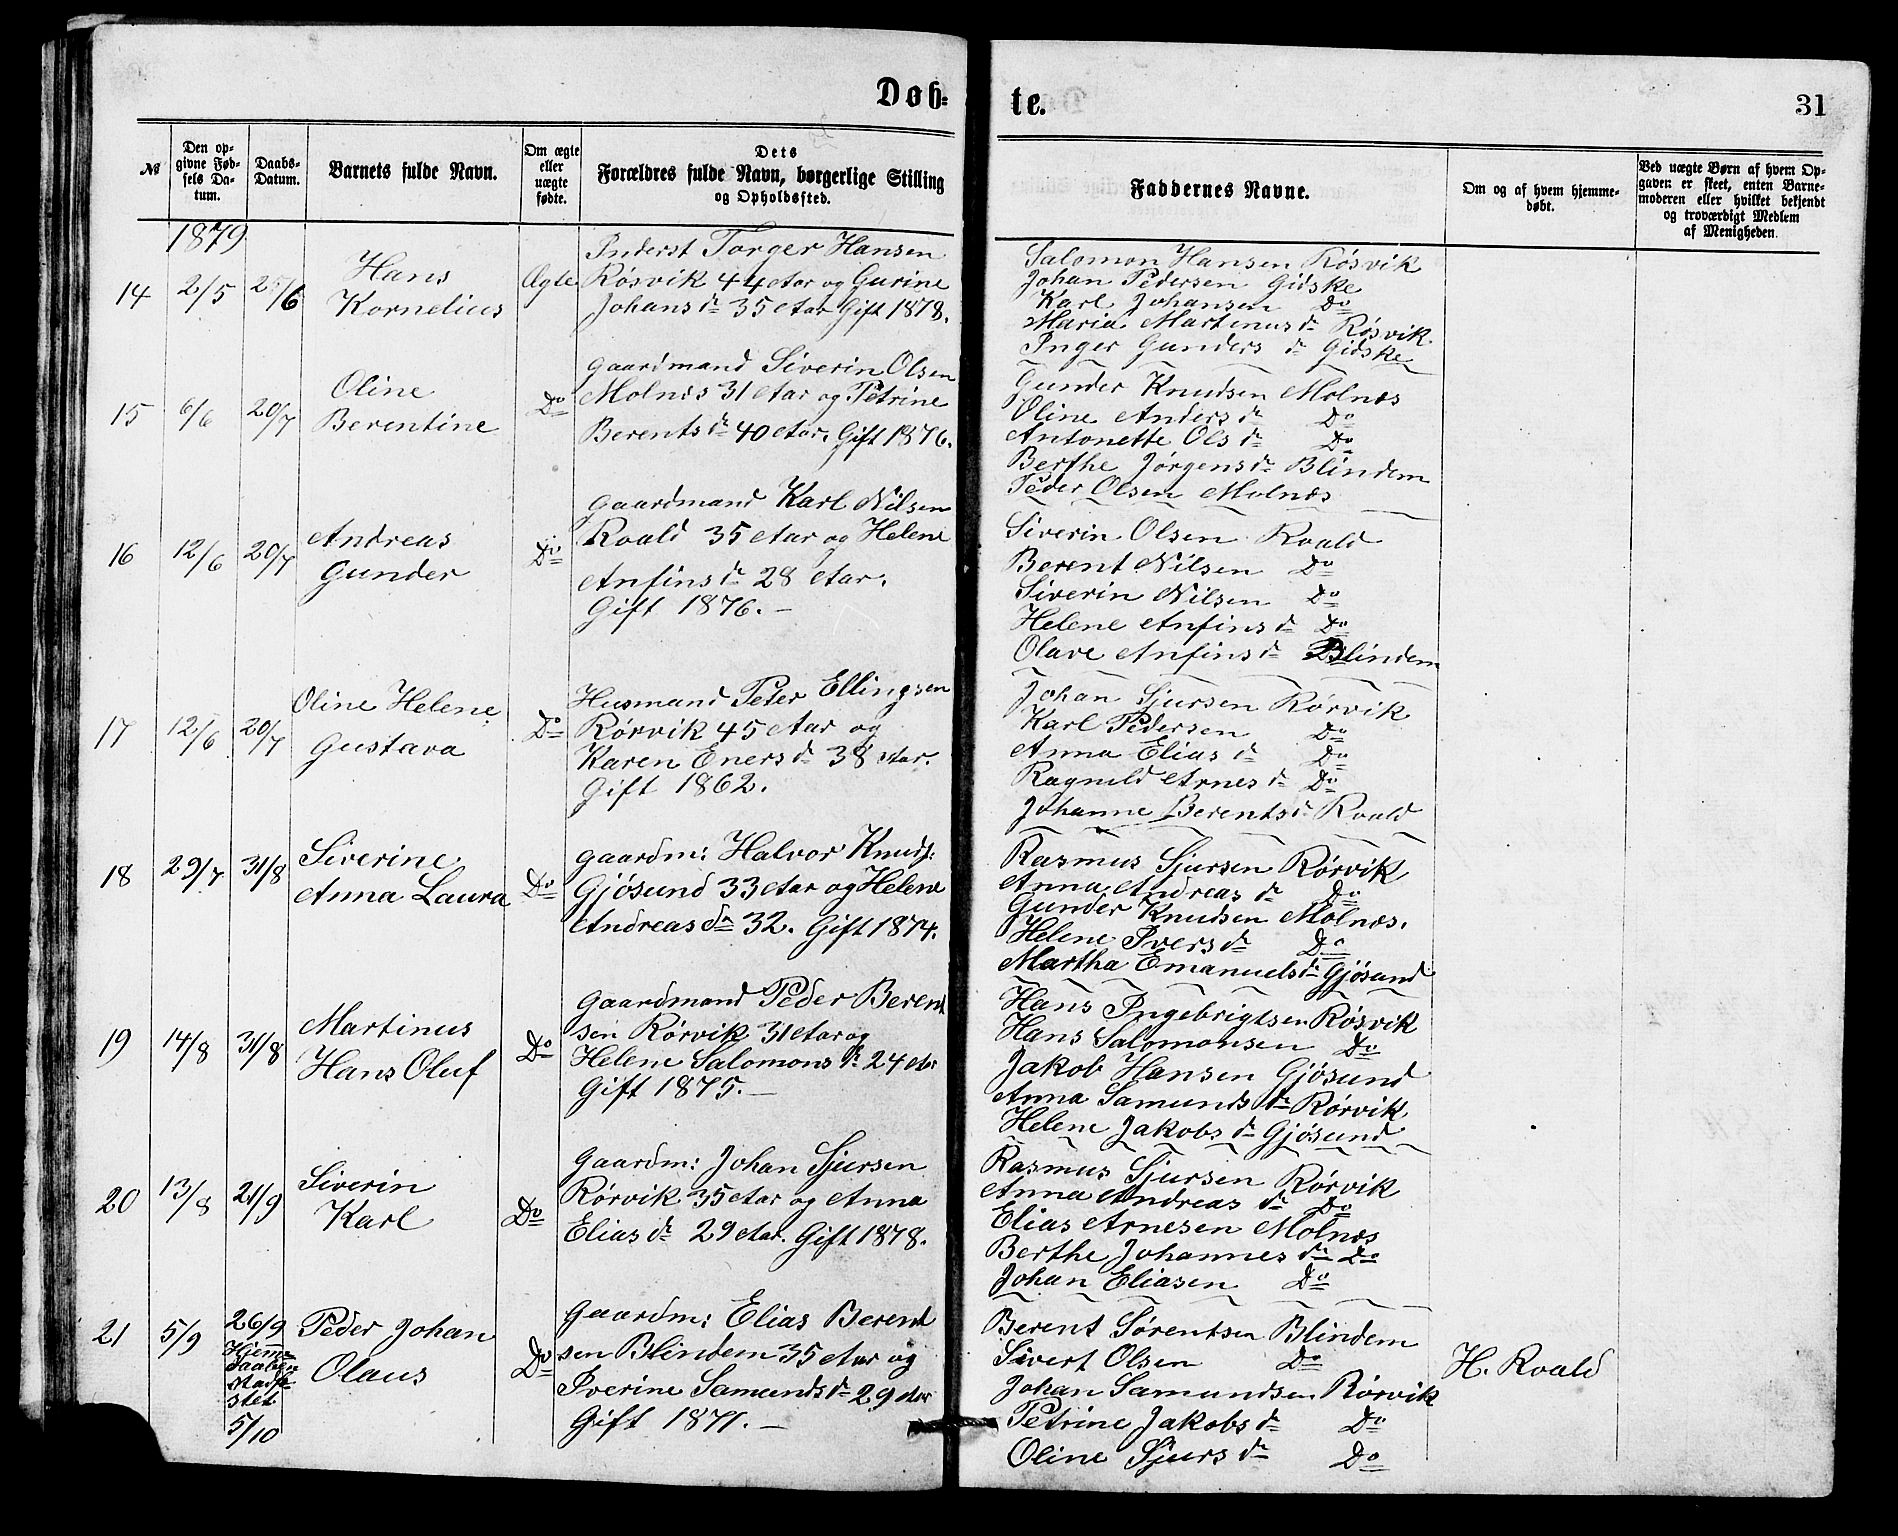 Døb-
te.
31
№
Den op-
givne Fød-
sels Da-
tum.
Daabs-
Datum.
Barnets fulde Navn.
Om ægte
eller
uægte
fødte.
Dets
Forældres fulde Navn, borgerlige Stilling
og Opholdssted.
Faddernes Navne.
Om og af hvem hjemme-
døbt.
Ved uægte Børn af hvem Op-
gaven er skeet, enten Barne-
moderen eller hvilket bekjendt
og troværdigt Medlem
af Menigheden.
1879
14 2/5 2 /6
Hans
Kornelius
Ægte
Inderst Torger Hansen
Røsvik 44 Aar og Gurine
Johans dr 35 Aar Gift 1878.
Salomon Hansen Røsvik
Johan Pedersen Gidske
Karl Johansen Do
Maria Martinus dr Røsvik
Inger Gunders dr Gidske
15 6/6 20/7
Oline
Berentine
Do
Gaardmand Siverin Olsen
Molnes 31 Aar og Petrine
Berents dr 40 Aar. Gift 1876.
Gunder Knudsen Molnæs
Oline Anders dr Do
Antonette Ols dr Do
Berthe Jørgens dr Blindem
Peder Olsen Molnæs
16 12/6 20/7
Andreas
Gunder
Do
Gaardmand Karl Nilsen
Roald 35 Aar og Helene
Anfins dr 28 Aar.
Gift 1876. —
Siverin Olsen Roald
Berent Nilsen Do
Siverin Nilsen Do
Helene Anfins dr Do
Olave Anfins dr Blindem
17 12/6 20/7
Oline Helene
Gustava
Do
Husmand Peter Ellingsen
Rørvik 45 Aar og
Karen Eners dr 38 Aar.
Gift 1862.
Johan Sjursen Rørvik
Karl Pedersen Do
Anna Elias dr Do
Ragnild Arnes dr Do
Johanne Berents dr Roald
18 29/7 31/8
Siverine
Anna Laura
Do
Gaardm: Halvor Knuds:
Gjøsund 33 Aar og Helene
Andreas dr 32. Gift 1874.
Rasmus Sjursen Rørvik
Anna Andreas dr Do
Gunder Knudsen Molnæs.
Helene Ivers dr Do
Martha Emanuels dr Gjøsund
19 14/8 31/8
Martinus
Hans Oluf
Do
Gaardmand Peder Berent
sen Rørvik 31 Aar og
Helene Salomons dr 24 Aar
Gift 1875. —
Hans Ingebrigtsen Røsvik
Hans Salomonsen Do
Jakob Hansen Gjøsund
Anna Samunds dr Rørvik
Helene Jakobs dr Gjøsund
20 13/8 21/9
Siverin
Karl
Do
Gaardm: Johan Sjursen
Rørvik 35 Aar og Anna
Elias dr 29 Aar. Gift 1878.
Rasmus Sjursen Rørvik
Anna Andreas dr Do
Elias Arnesen Molnæs
Berthe Johannes dr Do
Johan Eliasen Do
21 5/9 26/9
Hjemme
Daaben
Stadfæ
stet
5/10
Peder Johan
Olaus
Do
Gaardm: Elias Berent
sen Blindem 35 Aar og
Iverine Samunds dr 29 Aar
Gift 1871. —
Berent Sørentsen Blindem
Sivert Olsen Do
Johan Samundsen Rørvik
Petrine Jakobs dr Do
Oline Sjurs dr Do
H. Roald